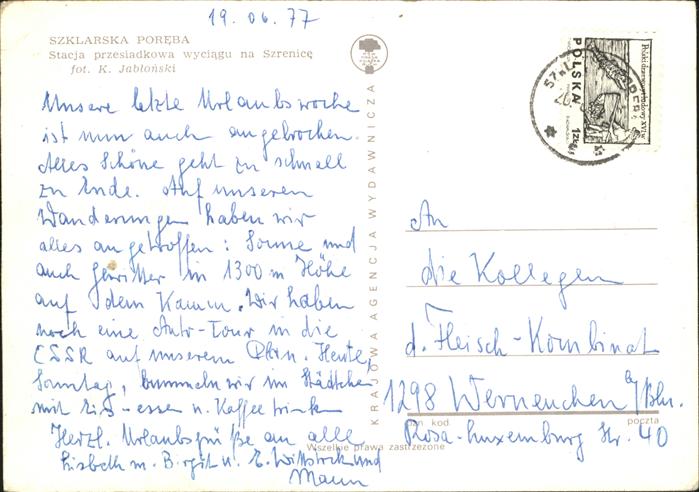 19.06.77
SZKLARSKA PORĘBA
Stacja przesiadkowa wyciągu na Szrenicę
fot. K. Jabłoński
Unsere letzte Urlaubswoche
ist nun auch angebrochen.
Alles Schöne geht zu schnell
zu Ende. Auf unseren
Wanderungen haben wir
alles angetroffen: Sonne und
auch Gewitter in 1300 m Höhe
auf dem Kamm. Wir haben
noch eine Auto-Tour in die
ČSSR auf unserem Plan. Heute,
Sonntag, bummeln wir im Städtchen
mit Eis-essen u. Kaffee trinken
Herzl. Urlaubsgrüße an alle
Lisbeth m. Birgit u. E. Wittstock und
Mann
KRAJOWA AGENCJA WYDAWNICZA
POLSKA
An
die Kollegen
d. Fleisch-Kombinat
1298 Werneuchen b/Bln.
kod poczta
Rosa-Luxemburg Str. 40
Wszelkie prawa zastrzeżone